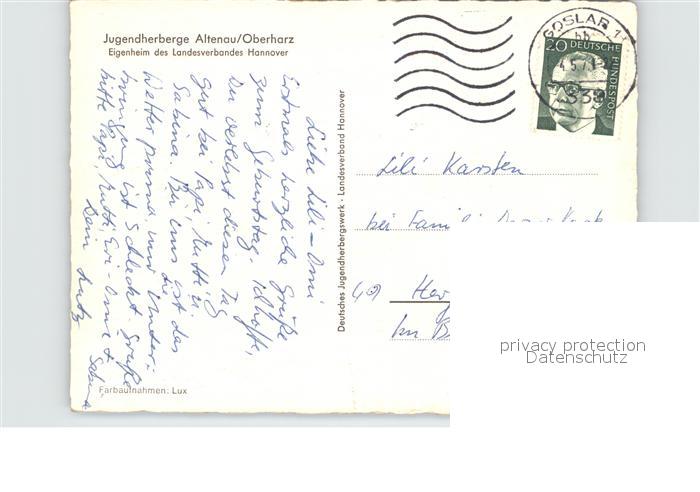 Jugendherberge Altenau/Oberharz
Eigenheim des Landesverbandes Hannover
Liebe Lili-Omi
Erstmals herzliche Grüße
zum Geburtstag. Ich hoffe,
Du verlebst diesen Tag
gut bei Papi, Mutti u.
Sabina. Bei uns ist das
Wetter prima, nur die Unter-
bringung ist schlecht. Grüße
bitte Papi, Mutti, Evi-Oma +
Sabina
Dein Lutz
Farbaufnahmen: Lux
Deutsches Jugendherbergswerk · Landesverband Hannover
GOSLAR 1
bb
20 DEUTSCHE BUNDESPOST
Lili Karsten
bei Famili
Her
Im B
privacy protection
Datenschutz